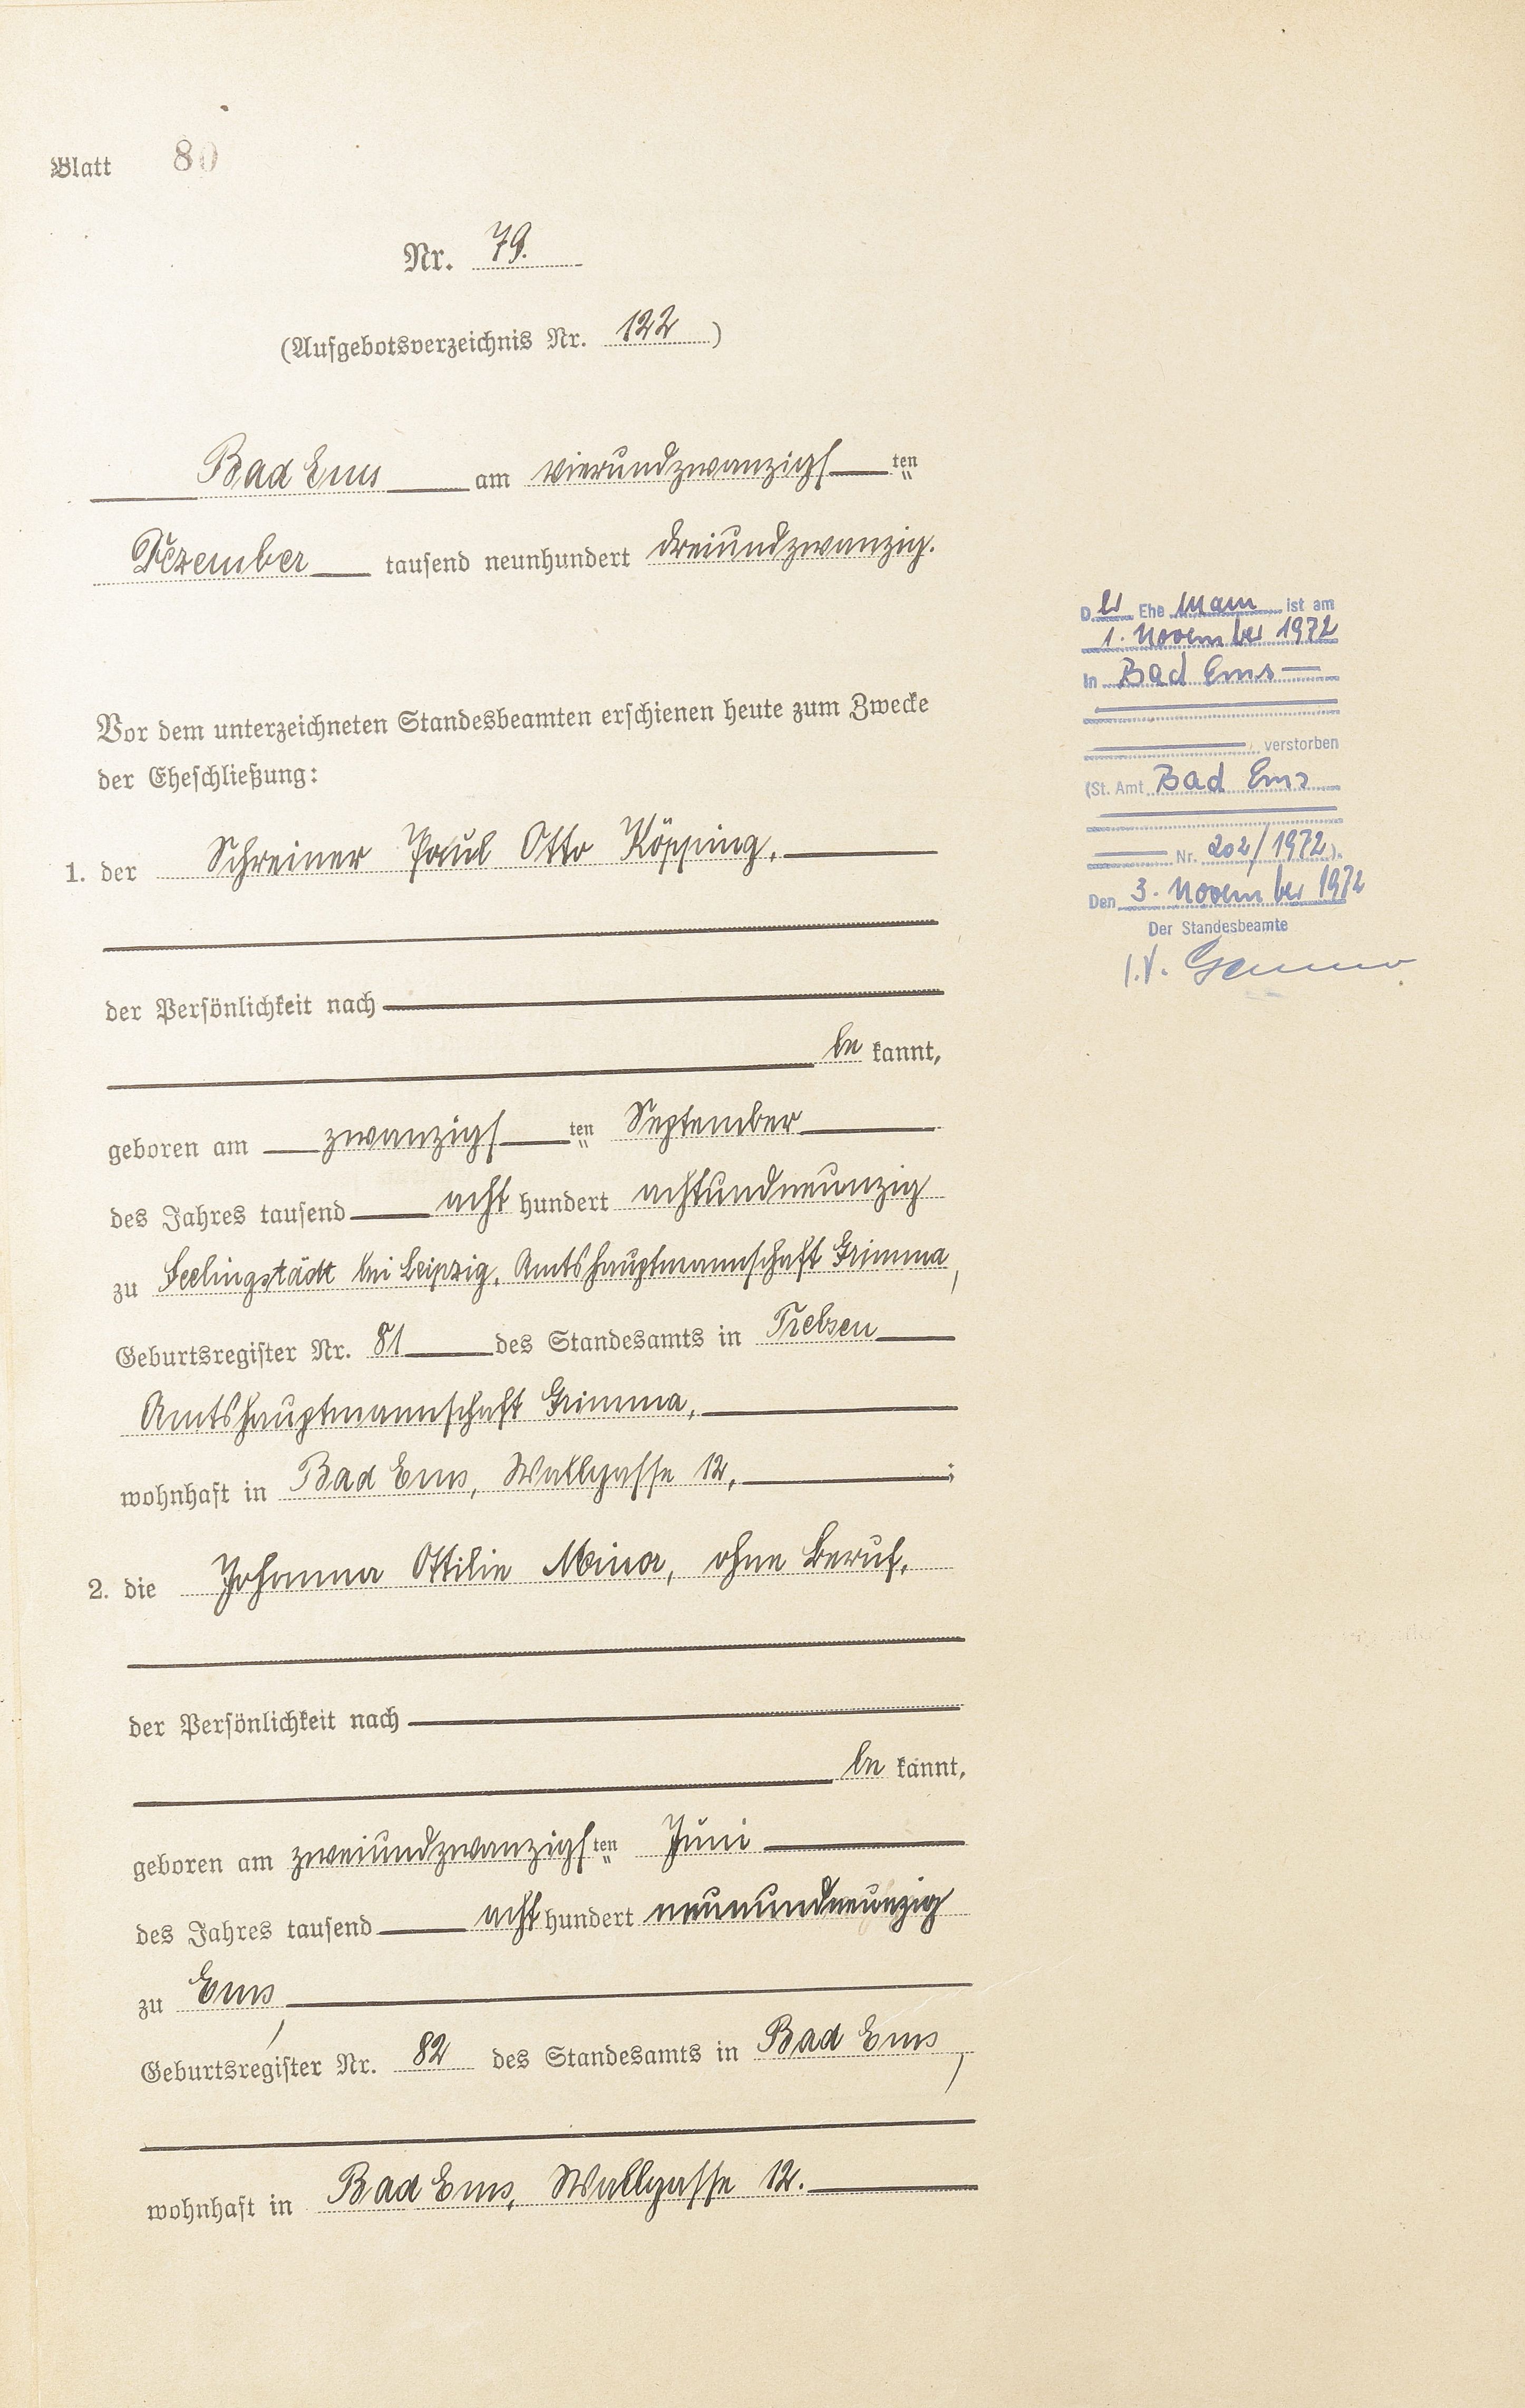 Blatt 80
Nr. 79.
(Aufgebotsverzeichnis Nr. 122)
Bad Ems am vierundzwanzigsten
Dezember tausend neunhundert dreiundzwanzig.
Vor dem unterzeichneten Standesbeamten erschienen heute zum Zwecke
der Eheschließung:
1. der Schreiner Paul Otto Köpping,
der Persönlichkeit nach
bekannt,
geboren am zwanzigsten September
des Jahres tausend achthundert achtundneunzig
zu Seelingstädt bei Leipzig, Amtshauptmannschaft Grimma,
Geburtsregister Nr. 81 des Standesamts in Trebsen
Amtshauptmannschaft Grimma,
wohnhaft in Bad Ems, Wallgasse 12,;
2. die Johanna Ottilie Minor, ohne Beruf,
der Persönlichkeit nach
bekannt,
geboren am zweiundzwanzigsten Juni
des Jahres tausend achthundert neunundneunzig
zu Ems,
Geburtsregister Nr. 82 des Standesamts in Bad Ems,
wohnhaft in Bad Ems, Wallgasse 12.
Der Ehemann ist am
1. November 1972
in Bad Ems
verstorben
(St. Amt Bad Ems
Nr. 202/1972).
Den 3. November 1972
Der Standesbeamte
I.V.